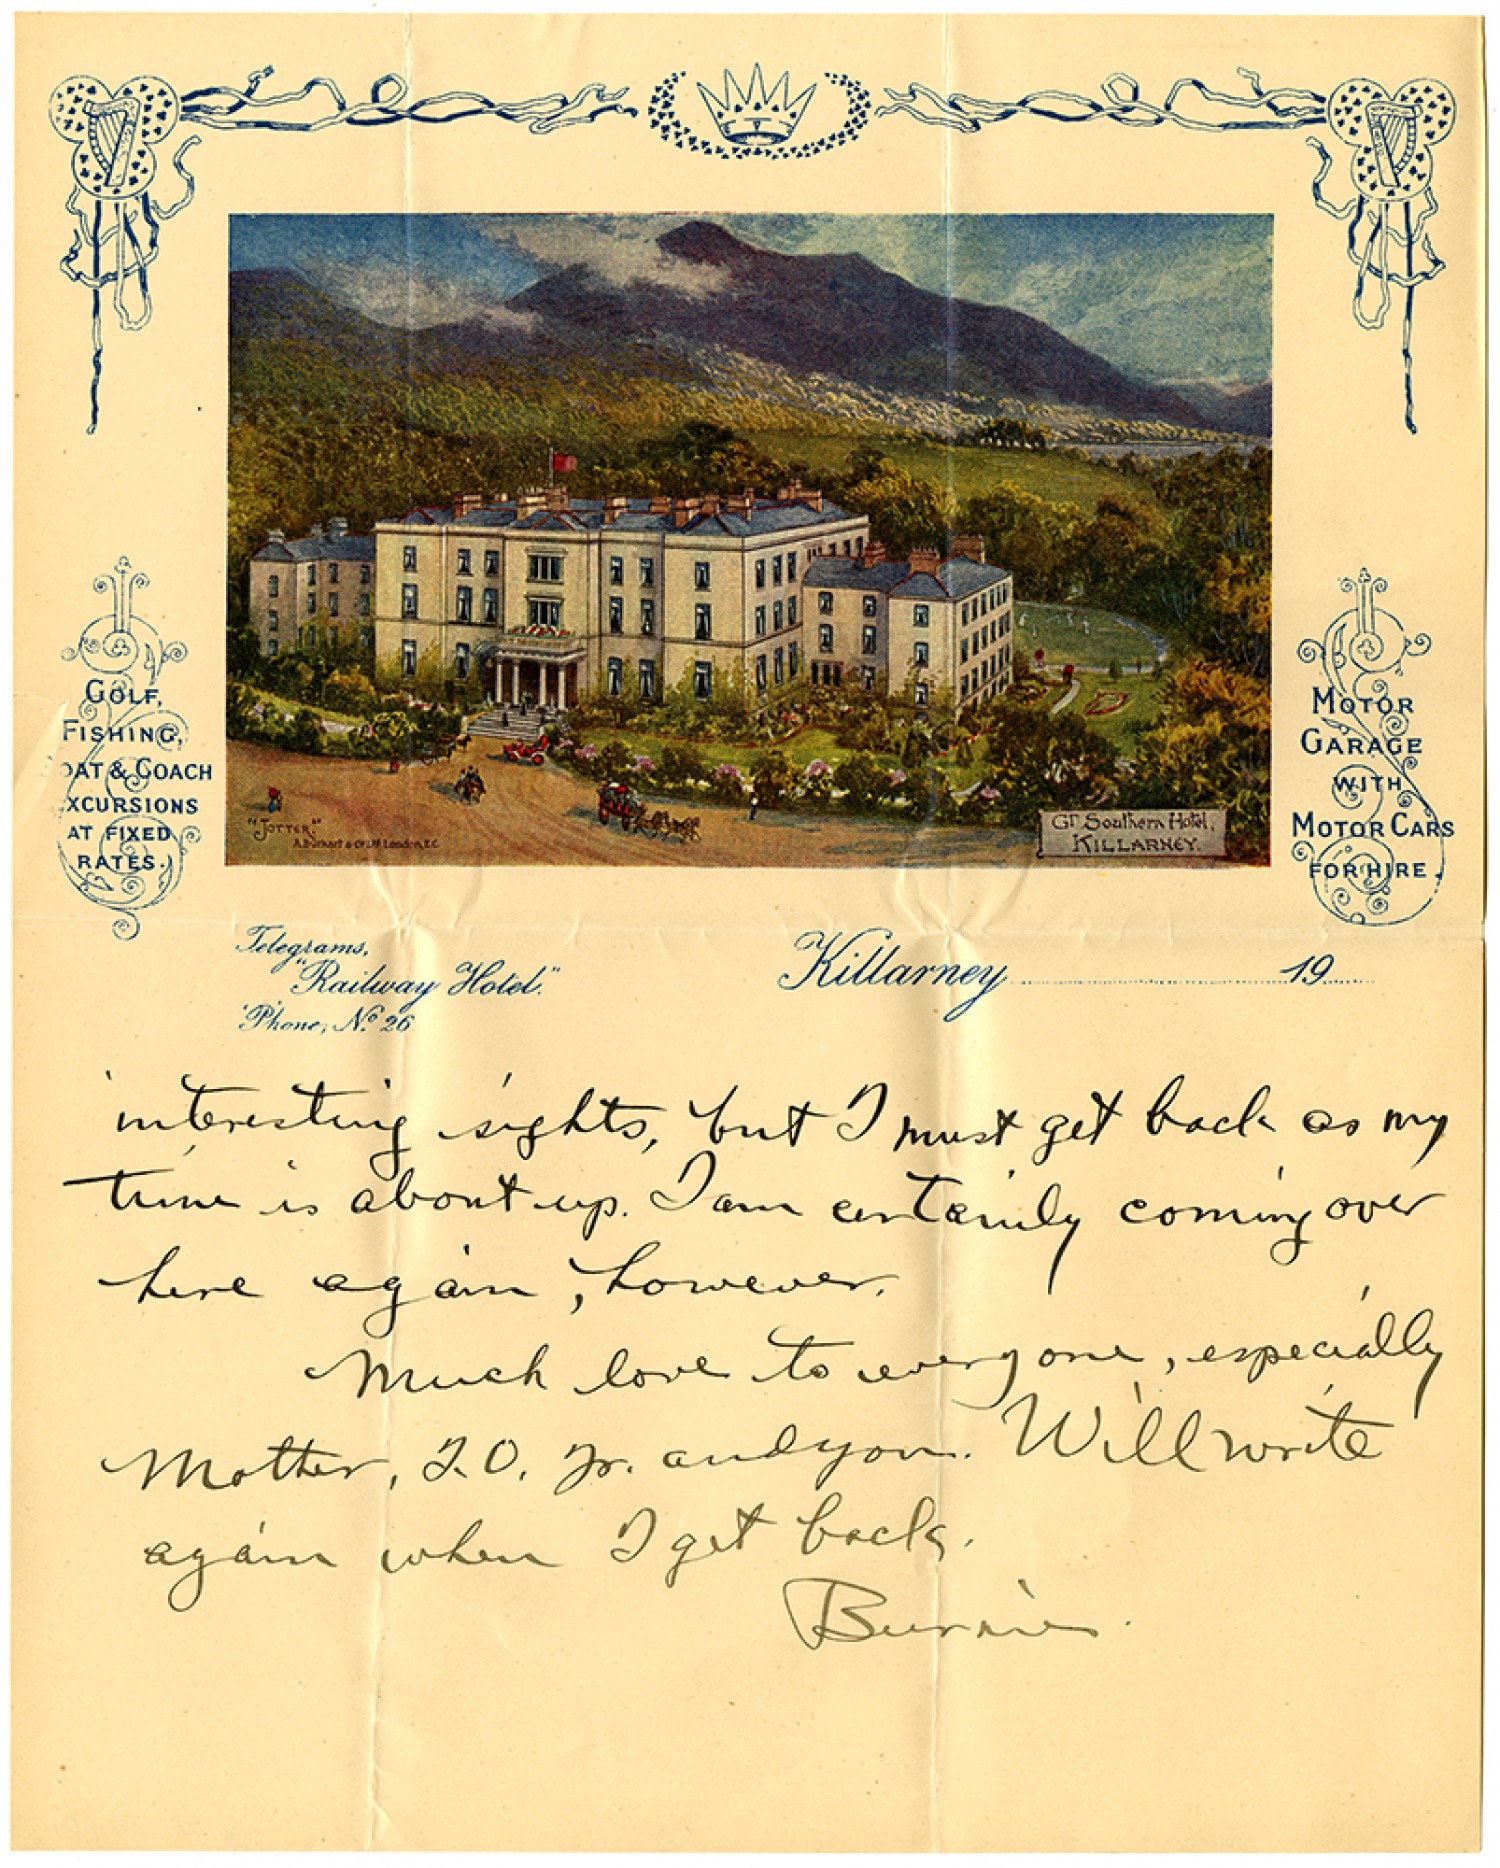 GOLF,
FISHING,
OAT & COACH
XCURSIONS
AT FIXED
RATES.
"JOTTER"
A. Burkart & Co Ld London, E.C.
GT Southern Hotel,
KILLARNEY.
MOTOR
GARAGE
WITH
MOTOR CARS
FOR HIRE.
Telegrams,
"Railway Hotel."
'Phone, No 26
Killarney 19
interesting sights, but I must get back as my
time is about up. I am certainly coming over
here again, however.
Much love to everyone, especially
Mother, T.O. Jr. and you. Will write
again when I get back.
Burnie.